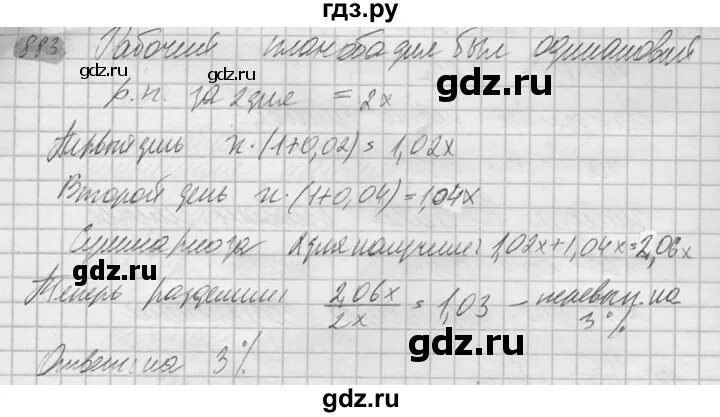 гдз.ру
883 Рабочий план оба дня был одинаковый
gdz.ru gdz.ru
р.п. за 2 дня = 2х
gdz.ru
Первый день х·(1+0,02)=1,02х
Второй день х·(1+0,04)=1,04х
gdz.ru
Суммарно за 2 дня получим 1,02х+1,04х=2,06х
gdz.ru
Теперь разделим 2,06х/2х = 1,03 – перевып. на 3%
gdz.ru
Ответ: на 3%
gdz.ru
gdz.ru